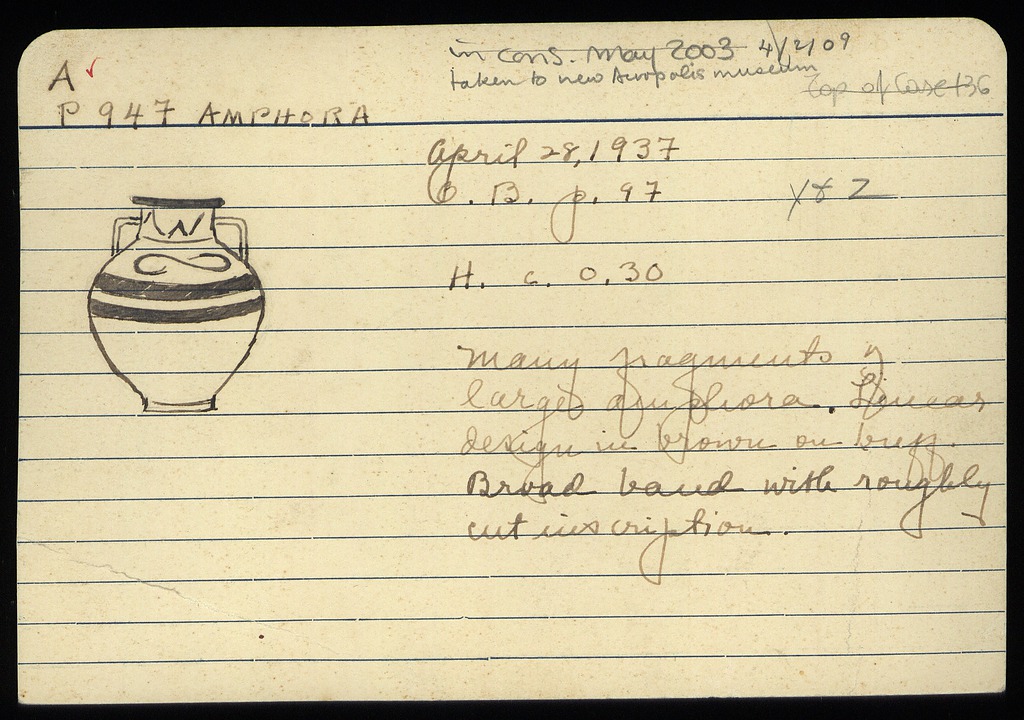 in cons. May 2003 4/2/09
taken to new Acropolis museum
Top of Case 136
A
P 947 AMPHORA
April 28, 1937
O. B. p. 97
H. c. 0.30
Many fragments of
large amphora. Linear
design in brown on buff.
Broad band with roughly
cut inscription.